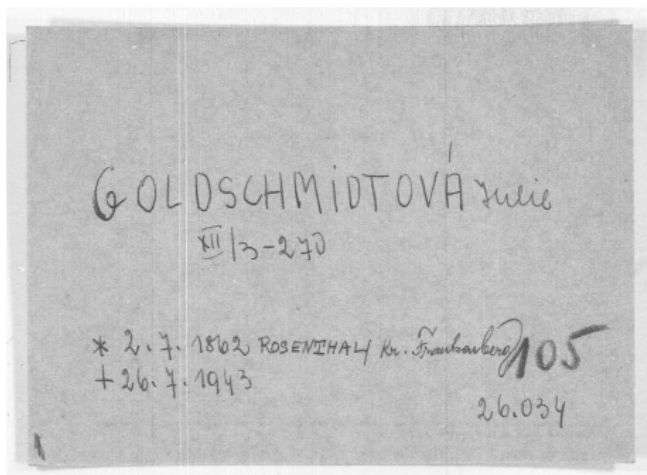 GOLDSCHMIDTOVÁ Julie
XII/3-270
* 2.7.1862 ROSENTHAL / Kr. Frankenberg / 105
+ 26.7.1943
26.034